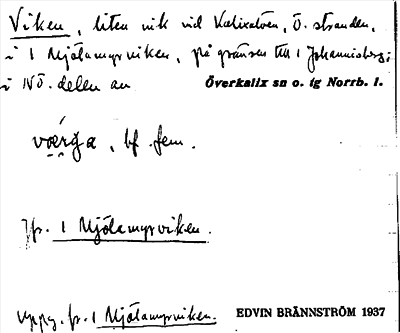 Viken, liten vik vid Kalixälven, Ö. stranden,
i 1 Mjölamyrviken, på gränsen till 1 Johannisberg;
i NÖ. delen av Överkalix sn o. tg Norrb. l.
bf. fem.
Jfr. 1 Mjölamyrviken.
Uppg. fr. 1 Mjölamyrviken. EDVIN BRÄNNSTRÖM 1937